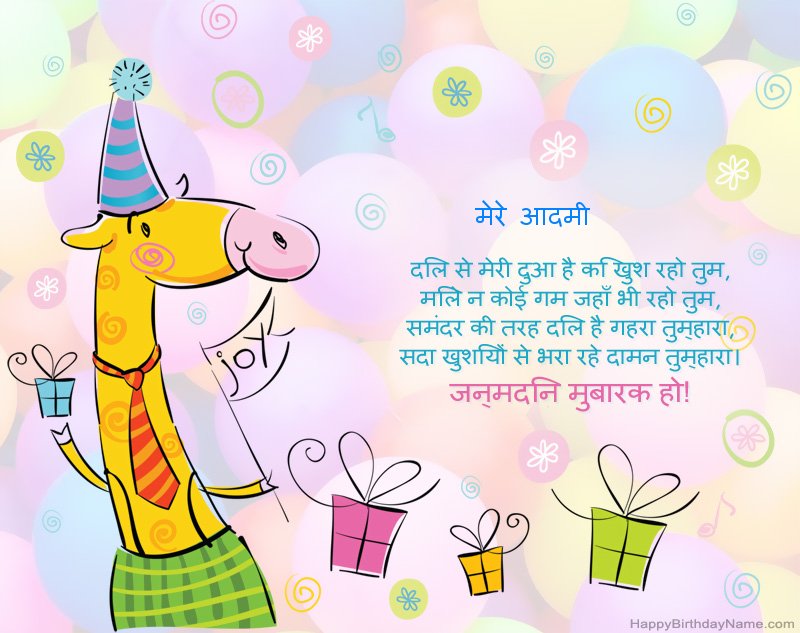 मेरे आदमी
दिल से मेरी दुआ है कि खुश रहो तुम,
मिले न कोई गम जहाँ भी रहो तुम,
समंदर की तरह दिल है गहरा तुम्हारा,
सदा खुशियों से भरा रहे दामन तुम्हारा।
जन्मदिन मुबारक हो!
joy
HappyBirthdayName.com